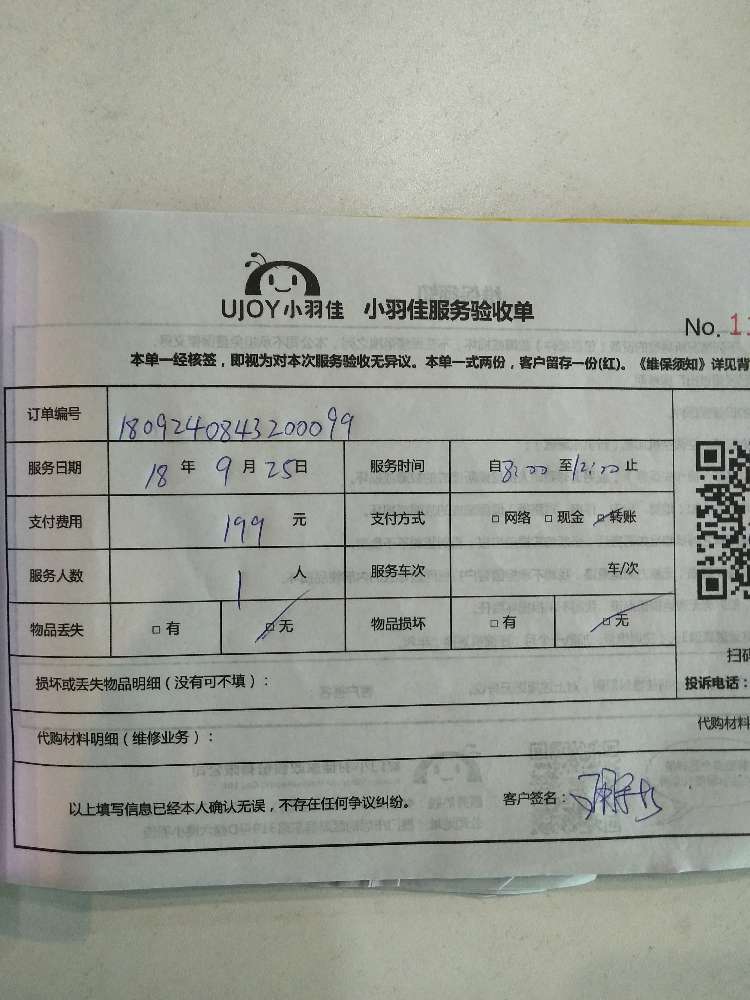 UJOY小羽佳 小羽佳服务验收单
No. 11
本单一经核签，即视为对本次服务验收无异议。本单一式两份，客户留存一份(红)。《维保须知》详见背
订单编号 1809240843200099
服务日期 18 年 9 月 25日 服务时间 自8:00 至12:00 止
支付费用 199 元 支付方式 □ 网络 □ 现金 □ 转账
服务人数 1 人 服务车次 车/次
物品丢失 □ 有 □ 无 物品损坏 □ 有 □ 无
扫码
损坏或丢失物品明细（没有可不填）：
投诉电话：
代购材料明细（维修业务）：
代购材料
以上填写信息已经本人确认无误，不存在任何争议纠纷。 客户签名：